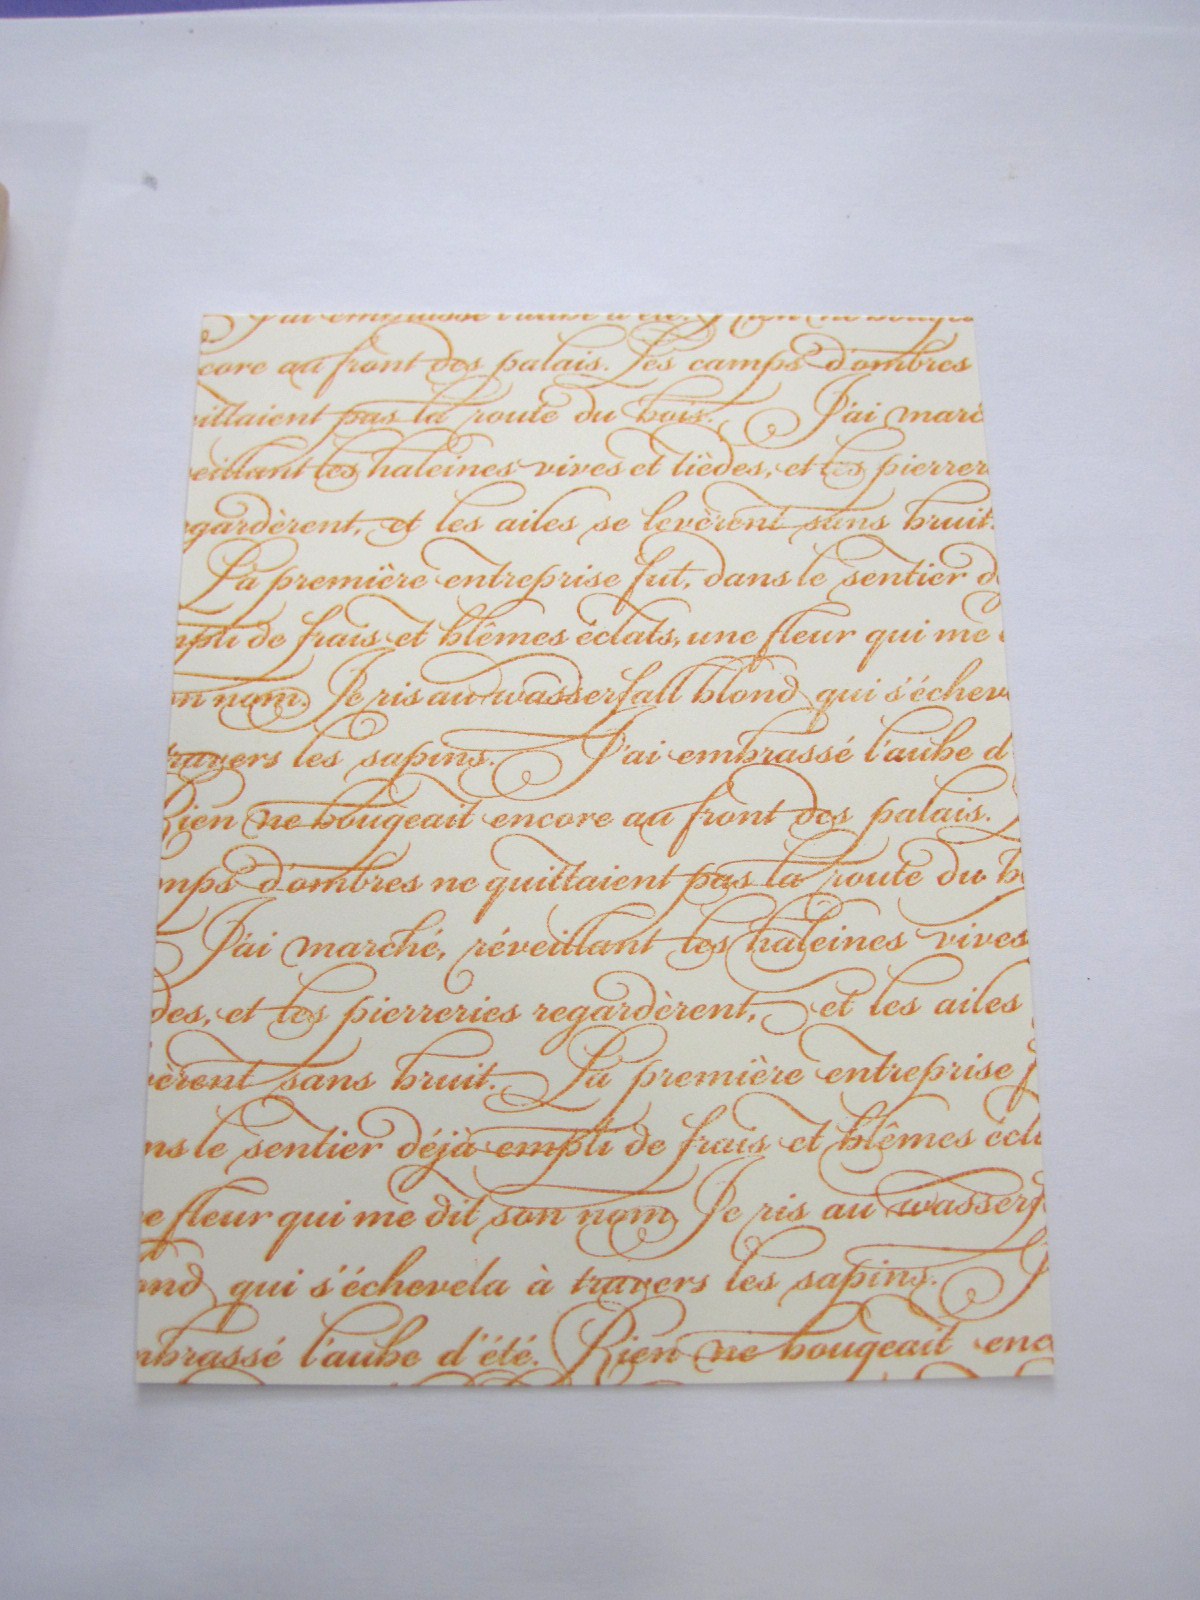 J'ai embrassé l'aube d'été. Rien ne bouge
core au front des palais. Les camps d'ombres
uittaient pas la route du bois. J'ai marc
veillant les haleines vives et tièdes, et les pierrer
egardèrent, et les ailes se levèrent sans bruit.
La première entreprise fut, dans le sentier d
mpli de frais et blêmes éclats, une fleur qui me
on nom. Je ris au wasserfall blond qui s'échev
travers les sapins. J'ai embrassé l'aube d'
Rien ne bougeait encore au front des palais.
mps d'ombres ne quittaient pas la route du b
J'ai marché, réveillant les haleines vives
des, et les pierreries regardèrent, et les ailes
vèrent sans bruit. La première entreprise f
ns le sentier déjà empli de frais et blêmes écla
e fleur qui me dit son nom. Je ris au wasserf
ond qui s'échevela à travers les sapins. J
mbrassé l'aube d'été. Rien ne bougeait enco